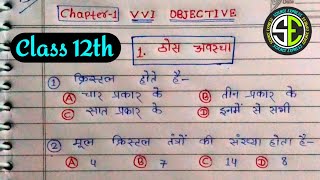 Chapter-1 VVI OBJECTIVE
Class 12th
1. ठोस अवस्था
① क्रिस्टल होते है-
Ⓐ चार प्रकार के Ⓑ तीन प्रकार के
Ⓒ सात प्रकार के Ⓓ इनमें से सभी
② मूल क्रिस्टल तंत्रों की संख्या होता है-
Ⓐ 4 Ⓑ 7 Ⓒ 14 Ⓓ 8